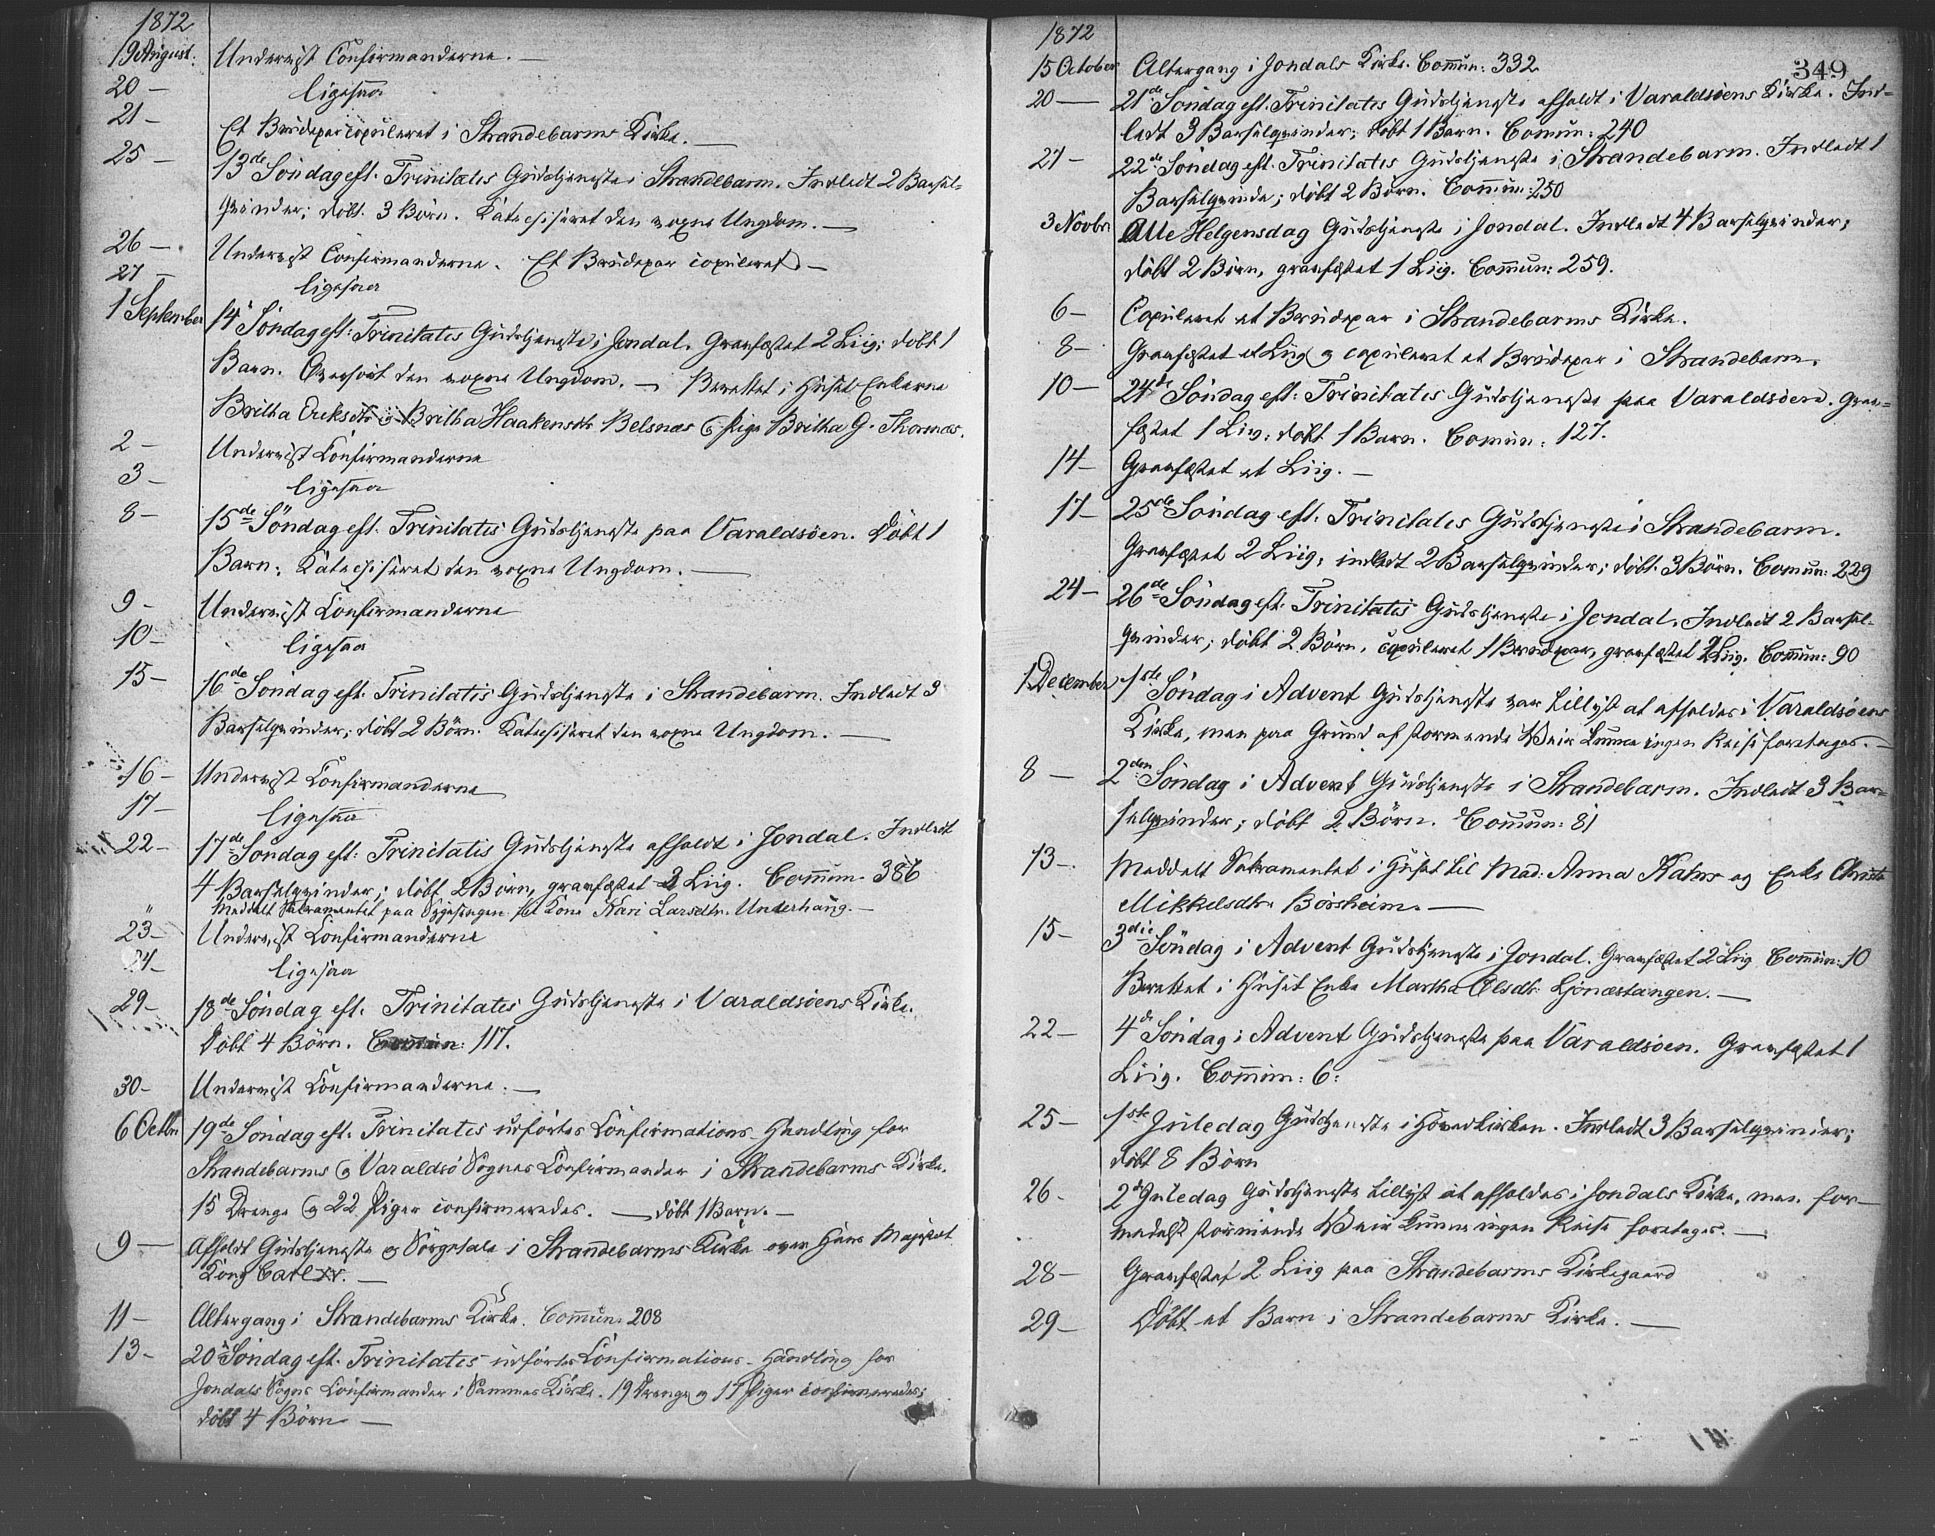 1872
19 August. Underviist Confirmanderne. —
20 — ligesaa
21 — Et Brudepar copuleret i Strandebarms Kirke. —
25 — 13de Søndag eft. Trinitatis Gudstjeneste i Strandebarm. Indledt 2 Barsel-
qvinder; døbt 3 Börn. Katechiseret den voxne Ungdom. —
26 — Underviist Confirmanderne. Et Brudepar copuleret —
27 — ligesaa
1 September 14de Söndag eft: Trinitatis Gudstjeneste i Jondal. Graafæstet 2 Liig; döbt 1
Barn. Overhört den voxne Ungdom. — Berettet i Huset Enkerne
Britha Ericksdtr og Britha Haakensdtr Belsnæs og Pige Britha G. Thornæs.
2 — Underviist Confirmanderne
3 — ligesaa
8 — 15de Söndag eft. Trinitatis Gudstjeneste paa Varaldsöen. Döbt 1
Barn. Katechiseret den voxne Ungdom. —
9 — Underviist Confirmanderne
10 — ligesaa
15 — 16de Söndag eft. Trinitatis Gudstjeneste i Strandebarm. Indledt 3
Barselqvinder; döbt 2 Börn. Katechiseret den voxne Ungdom. —
16 — Underviist Confirmanderne
17 — ligesaa
22 — 17de Söndag eft: Trinitatis Gudstjeneste afholdt i Jondal. Indledt
4 Barselqvinder; döbt 2 Börn, graafæstet 2 Liig. Commun. 386
" Meddelt Sakramentet paa Sygesengen til Kone Kari Larsdtr. Underhaug. —
23 — Underviist Confirmanderne
24 — ligesaa
29 — 18de Söndag eft. Trinitatis Gudstjeneste i Varaldsöens Kirke.
Döbt 4 Börn. Commun: 117.
30 — Underviist Confirmanderne. —
6 Octbr. 19de Söndag eft. Trinitatis udförtes Confirmations-Handling for
Strandebarms og Varaldsö Sognes Confirmander i Strandebarms Kirke.
15 Drenge og 22 Piger confirmeredes. — döbt 1 Barn. —
9 — Afholdt Gudstjeneste og Sörgetale i Strandebarms Kirke over Hans Majestæt
Kong Carl XV. —
11 — Altergang i Strandebarms Kirke. Commun. 208
13 — 20de Söndag eft. Trinitatis udförtes Confirmations-Handling for
Jondals Sogns Confirmander i Sammes Kirke. 19 Drenge og 17 Piger confirmeredes;
döbt 4 Börn —
1872
349
15 October Altergang i Jondals Kirke. Commun: 332
20 — 21de Söndag eft. Trinitatis Gudstjeneste afholdt i Varaldsöens Kirke. Ind-
ledt 3 Barselqvinder; döbt 1 Barn. Comun: 240
27 — 22de Söndag eft. Trinitatis Gudstjeneste i Strandebarm. Indledt 1
Barselqvinde; döbt 2 Börn. Commun: 250
3 Novbr. Alle Helgensdag Gudstjeneste i Jondal. Indledt 4 Barselqvinder;
döbt 2 Börn, graafæstet 1 Liig. Commun: 259.
6 — Copuleret et Brudepar i Strandebarms Kirke.
8 — Graafæstet et Liig og copuleret et Brudepar i Strandebarm.
10 — 24de Söndag eft: Trinitatis Gudstjeneste paa Varaldsöen. Graa-
fæstet 1 Liig; döbt 1 Barn. Comun: 127.
14 — Graafæstet et Liig. —
17 — 25de Söndag eft. Trinitatis Gudstjeneste i Strandebarm.
Graafæstet 2 Liig; indledt 2 Barselqvinder; döbt 3 Börn. Comun: 229
24 — 26de Söndag eft. Trinitatis Gudstjeneste i Jondal. Indledt 2 Barsel-
qvinder; döbt 2 Börn, copuleret 1 Brudepar, graafæstet Liig. Commun: 90
1 December 1ste Söndag i Advent Gudstjeneste var tillyst at afholdes i Varaldsöens
Kirke, men paa Grund af stormende Veir kunne ingen Reise foretages. —
8 — 2den Söndag i Advent Gudstjeneste i Strandebarm. Indledt 3 Bar-
selqvinder; döbt 2 Börn. Commun: 81
13 — Meddelt Sakramentet i Huset til Mad: Anna Kahrs og Enke Christi
Mikkelsdtr. Börsheim. —
15 — 3die Söndag i Advent Gudstjeneste i Jondal. Graafæstet 2 Liig Commun: 10
Berettet i Huset Enke Martha Olsdtr. Ljonæstangen. —
22 — 4de Söndag i Advent Gudstjeneste paa Varaldsöen. Graafæstet 1
Liig. Commun: 6:
25 — 1ste Juledag Gudstjeneste i Hovedkirken. Indledt 3 Barselqvinder;
döbt 8 Börn
26 — 2de Juledag Gudstjeneste tillyst at afholdes i Jondals Kirke, men for-
medelst stormende Veir kunne ingen Reise foretages. —
28 — Graafæstet 2 Liig paa Strandebarms Kirkegaard
29 — Döbt et Barn i Strandebarms Kirke. —